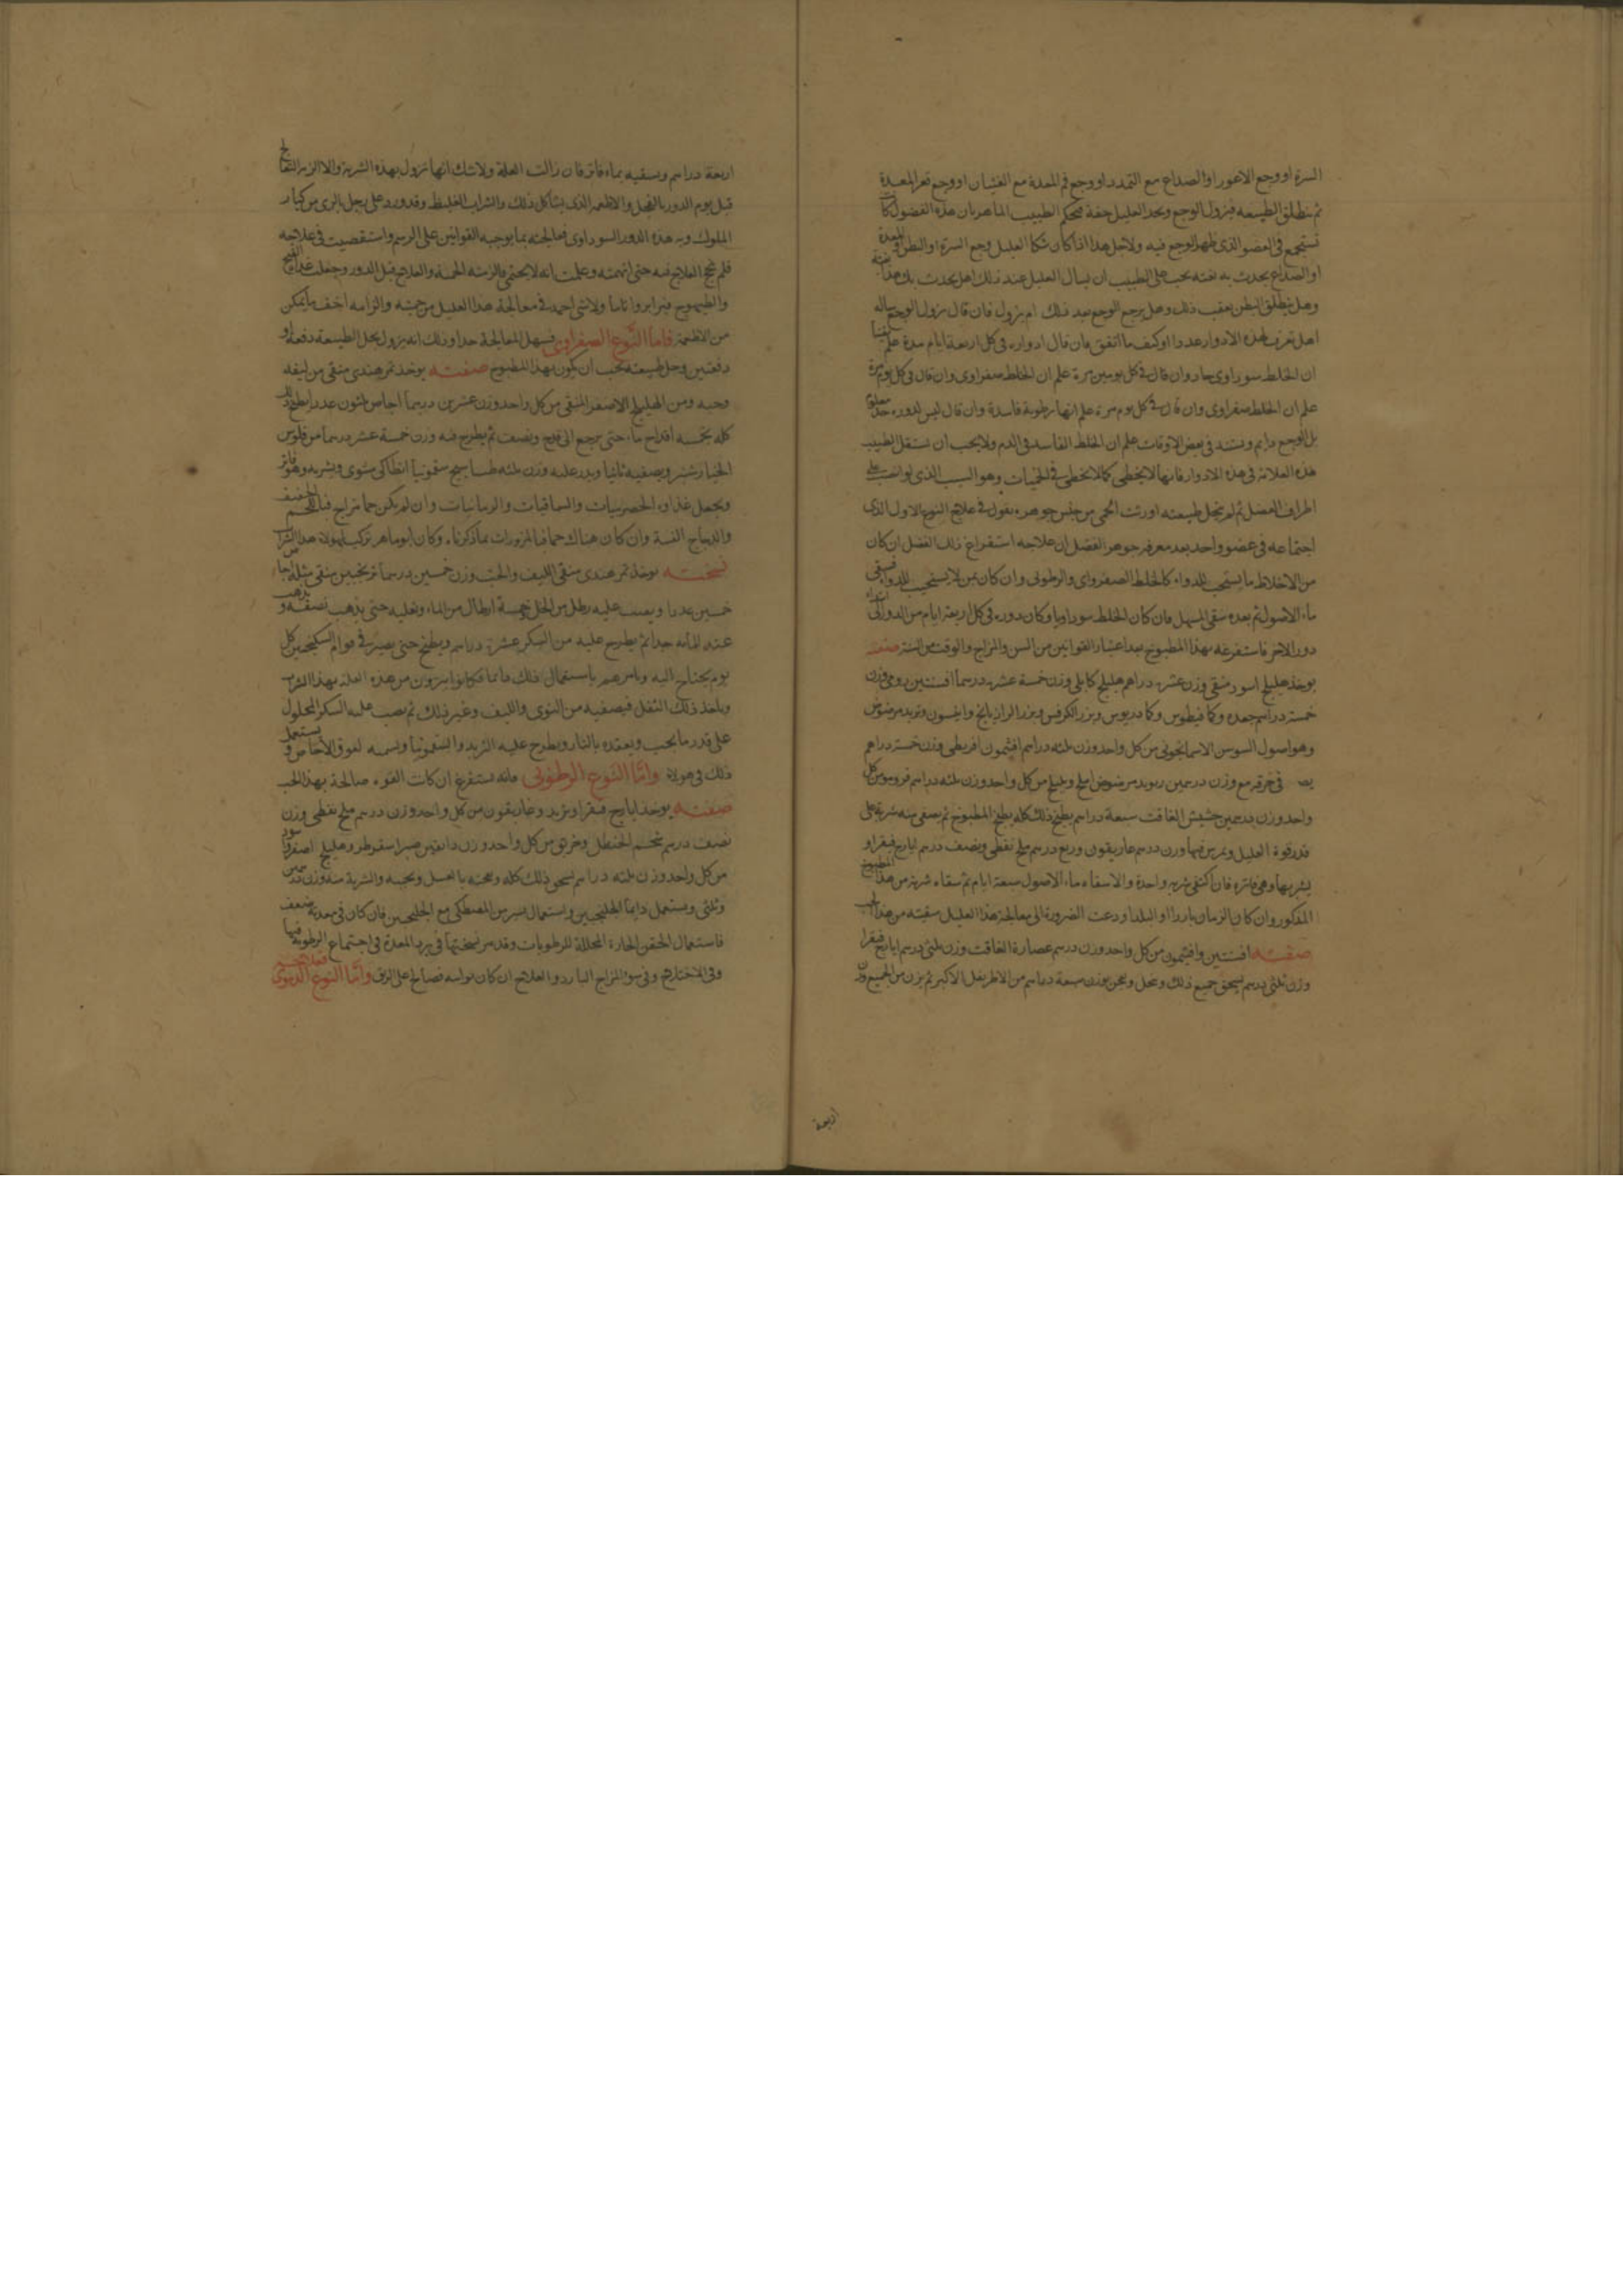 السرة او وجع الاعور او الصداع مع التمدد او وجع فم المعدة مع الغثيان او وجع قعر المعدة
ثم ينطلق الطبيعه فيزول الوجع ويجد العليل خفة فيحكم الطبيب الماهر بان هذه الفضول كانت
تستجمع في العضو الذي ظهر الوجع فيه ولاجل هذا اذا كان شكا العليل وجع السرة او البطن او المعدة
او الصداع يحدث به بغته يجب على الطبيب ان يسال العليل عند ذلك هل يحدث بك هذا بغتة
وهل ينطلق البطن بعقب ذلك وهل يرجع الوجع بعد ذلك ام يزول فان قال يزول الوجع ساله
هل تعرف لهذه الادوار عددا او كيف ما اتفق فان قال ادواره في كل اربعة ايام مدة علم يقينا
ان الخلط سوداوي حاد وان قال في كل يومين مرة علم ان الخلط صفراوي وان قال في كل يوم مرة
علم ان الخلط صفراوي وان قال في كل يوم مرة علم انها رطوبة فاسدة وان قال ليس لدوره حد معلوم
بل الوجع دايم ويشتد في بعض الاوقات علم ان الخلط الفاسد في الدم ولا يجب ان تستقل الطبيب
هذه العلامة في هذه الادوار فانها لا يخطي كما لا يخطي في الحميات وهو السبب الذي لو انصب على
اطراف العضل ثم لم تنحل طبيعته اورثت الحمى من جنس جوهره نقول في علاج النوع الاول الذي
اجتماعه في عضو واحد بعد معرفة جوهر الفضل ان علاجه استفراغ ذلك الفضل ان كان
من الاخلاط ما يستجيب للدواء كالخلط الصفراوي والرطوبي وان كان ممن لا يستجيب للدواء فيسقى
ماء الاصول ثم بعده سقي المسهل فان كان الخلط سوداويا وكان دوره في كل اربعة ايام من الدور الى
دور الاخر فاستفرغه بهذا المطبوخ بعد اعتبار القوانين من السن والمزاج والوقت من السنة صفته
يوخذ هليلج اسود منقى وزن عشرة دراهم هليلج كابلي وزن خمسة عشر درهما افسنتين رومي وزن
خمسة دراهم جعده وكمافيطوس وكمادريوس وبزر الكرفس وبزر الرازيانج وانيسون وتربد مرضوض
وهو اصول السوسن الاسمانجوني من كل واحد وزن ثلثه دراهم افتيمون اقريطي وزن خمسة دراهم
في خرقه مع وزن درهمين ريوند مرضوض املج وبليلج من كل واحد وزن ثلثه دراهم من كل
واحد وزن درهمين حشيش الغافت سبعة دراهم يطبخ ذلك كله يطبخ المطبوخ ثم يصفى منه شربة على
قدر قوة العليل ويمرس فيها وزن درهم غاريقون وربع درهم ملح نفطي ونصف درهم ايارج فيقرا و
يشربها وهي فاترة فان اكتفى بشربة واحدة والا سقاه ماء الاصول سبعة ايام ثم سقاه شربة من هذا المطبوخ
المذكور وان كان الزمان باردا او البلد او دعت الضرورة الى معالجة هذا العليل سقيته من هذا الحب
صفته افسنتين وافتيمون من كل واحد وزن درهم عصارة الغافت وزن ثلثي درهم ايارج فيقرا
وزن ثلثي درهم يسحق جميع ذلك وينخل ويعجن بوزن سبعة دراهم من الاطريفل الاكبر ثم يزن من الجميع وزن
اربعة
اربعة دراهم ويسقيه بماء فاتر فان زالت العلة ولا شك انها تزول بهذه الشربة والا الزمه
قبل يوم الدور بالفجل والاطعمه الذي يشاكل ذلك والشراب الغليظ وقد ورد على رجل بالري من كبار
الملوك وبه هذه الدور السوداوي فعالجته بما يوجبه القوانين على الرسم واستقصيت في علاجه
فلم ينجع العلاج فيه حتى اتهمته وعلمت انه لا يحتمي فالزمته الحمية والعلاج قبل الدور وجعلت غذاءه
والطيهوج فبرا بروا تاما ولا شي احمد في معالجة هذا العليل من حميته والزامه اخف ما يمكن
من الاطعمة فاما النوع الصفراوي فسهل المعالجة جدا وذلك انه يزول بحل الطبيعة دفعة او
دفعتين وحل طبيعته يجب ان يكون بهذا المطبوخ صفته يوخذ تمر هندي منقى من ليفه
وحبه ومن الهليلج الاصفر المنقى من كل واحد وزن عشرين درهما اجاص ثلثون عددا يطبخ ذلك
كله بخمسه اقداح ماء حتى يرجع الى قدح ونصف ثم يطرح فيه وزن خمسة عشر درهما من فلوس
الخيار شنبر ويصفيه ثانيا ويذر عليه وزن ثلثه طساسيج سقمونيا انطاكي مشوي ويشربه وهو فاتر
ويجعل غذاوه الحصرميات والسماقيات والرمانيات وان لم يكن حما فراريج فبا للحم الخفيف
والدجاج الفتية وان كان هناك حما فالمزورات بما ذكرناه وكان ابو ماهر تركب لهولاء هذا الشراب
نسخته يوخذ تمر هندي منقى الليف والحب وزن خمسين درهما ترنجبين منقى مثله
خمسين عددا ويصب عليه رطل من الخل خمسة ارطال من الماء ويغليه حتى يذهب نصفه و
ثم يطرح عليه من السكر عشرة دراهم ويطبخ حتى يصير في قوام السكنجبين كل
يوم يحتاج اليه ويامرهم باستعمال ذلك دائما فكانوا يبرون من هذه العلة بهذا الشراب
وياخذ ذلك الثفل فيصفيه من النوى والليف وغير ذلك ثم يصب عليه السكر المحلول
على قدر ما يجب ويعقده بالنار ويطرح عليه التربد والسقمونيا ويسميه لعوق الاجاص ويستعمل
ذلك في هولاء واما النوع الرطوبي فانه يستفرغ ان كانت القوه صالحة بهذا الحب
صفته يوخذ ايارج فيقرا وتربد وغاريقون من كل واحد وزن درهم ملح نفطي وزن
نصف درهم شحم الحنظل وخربق من كل واحد وزن دانقين صبر اسقوطر وهليلج اصفر واسود
من كل واحد وزن ثلثه دراهم يسحق ذلك كله ويعجنه بالعسل ويحببه والشربة منه وزن درهمين
وثلثي ويستعمل دايما الجلنجبين ويستعمل يسير من المصطكي مع الجلنجبين فان كان في معدته ضعف
فاستعمال الحقن الحارة المحللة للرطوبات وقد مر نسختها في برد المعدة في اجتماع الرطوبة فيها
وفي الاختلاج وفي سو المزاج البارد والعلاج ان كان بواسه فصالح على الريق واما النوع الدموي فعلاجه